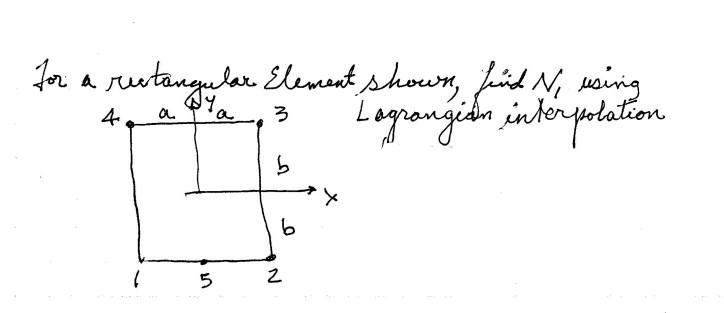 For a rectangular Element shown, find N₁ using
Lagrangian interpolation
4 a y a 3
b
x
b
1 5 2